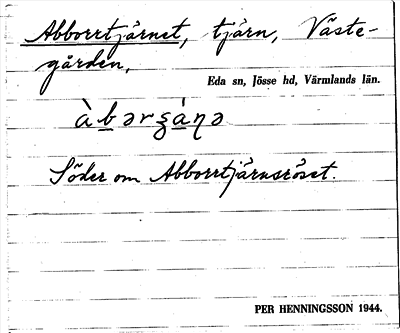 Abborrtjärnet, tjärn, Väste-
gården,
Eda sn, Jösse hd, Värmlands län.
Söder om Abborrtjärnsröset.
PER HENNINGSSON 1944.